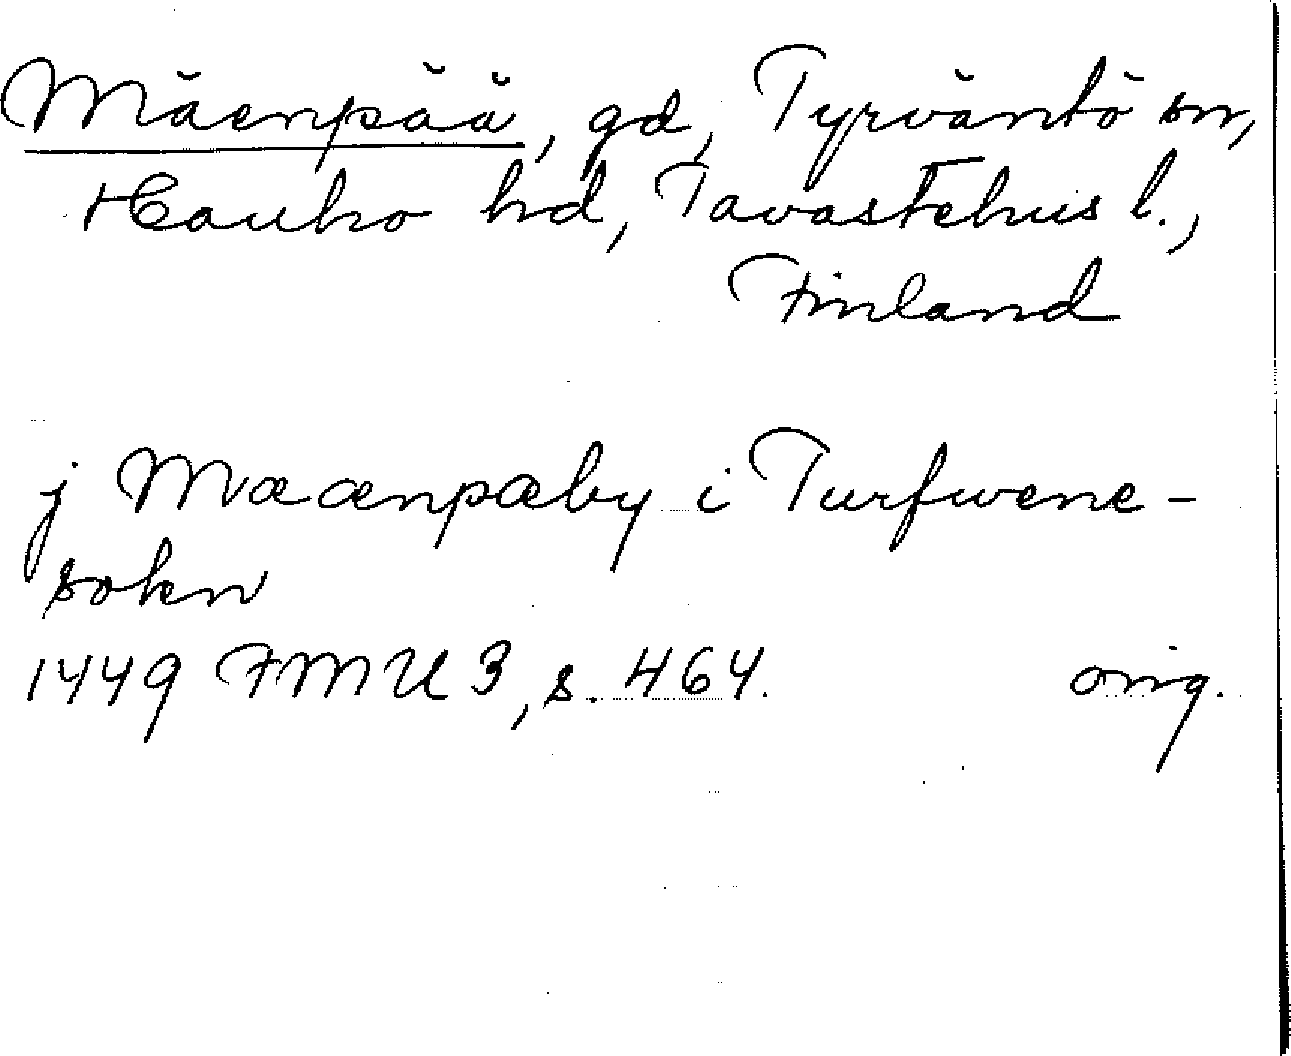 Mäenpää, gd, Tyrväntö sn,
Hauho hd, Tavastehus l.,
Finland
j Mæænpæby i Turfwene-
sokn
1449 FMU 3, s. 464. orig.